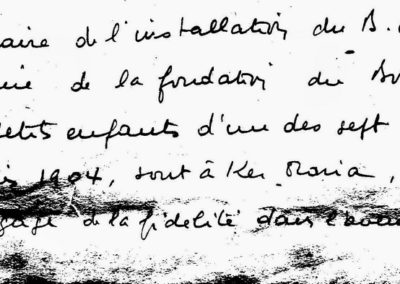 aire de l'installation du B.
de la fondation du
petits enfants d'un des sept
1904, sont à Ker Maria,
gage de la fidelité dans l'